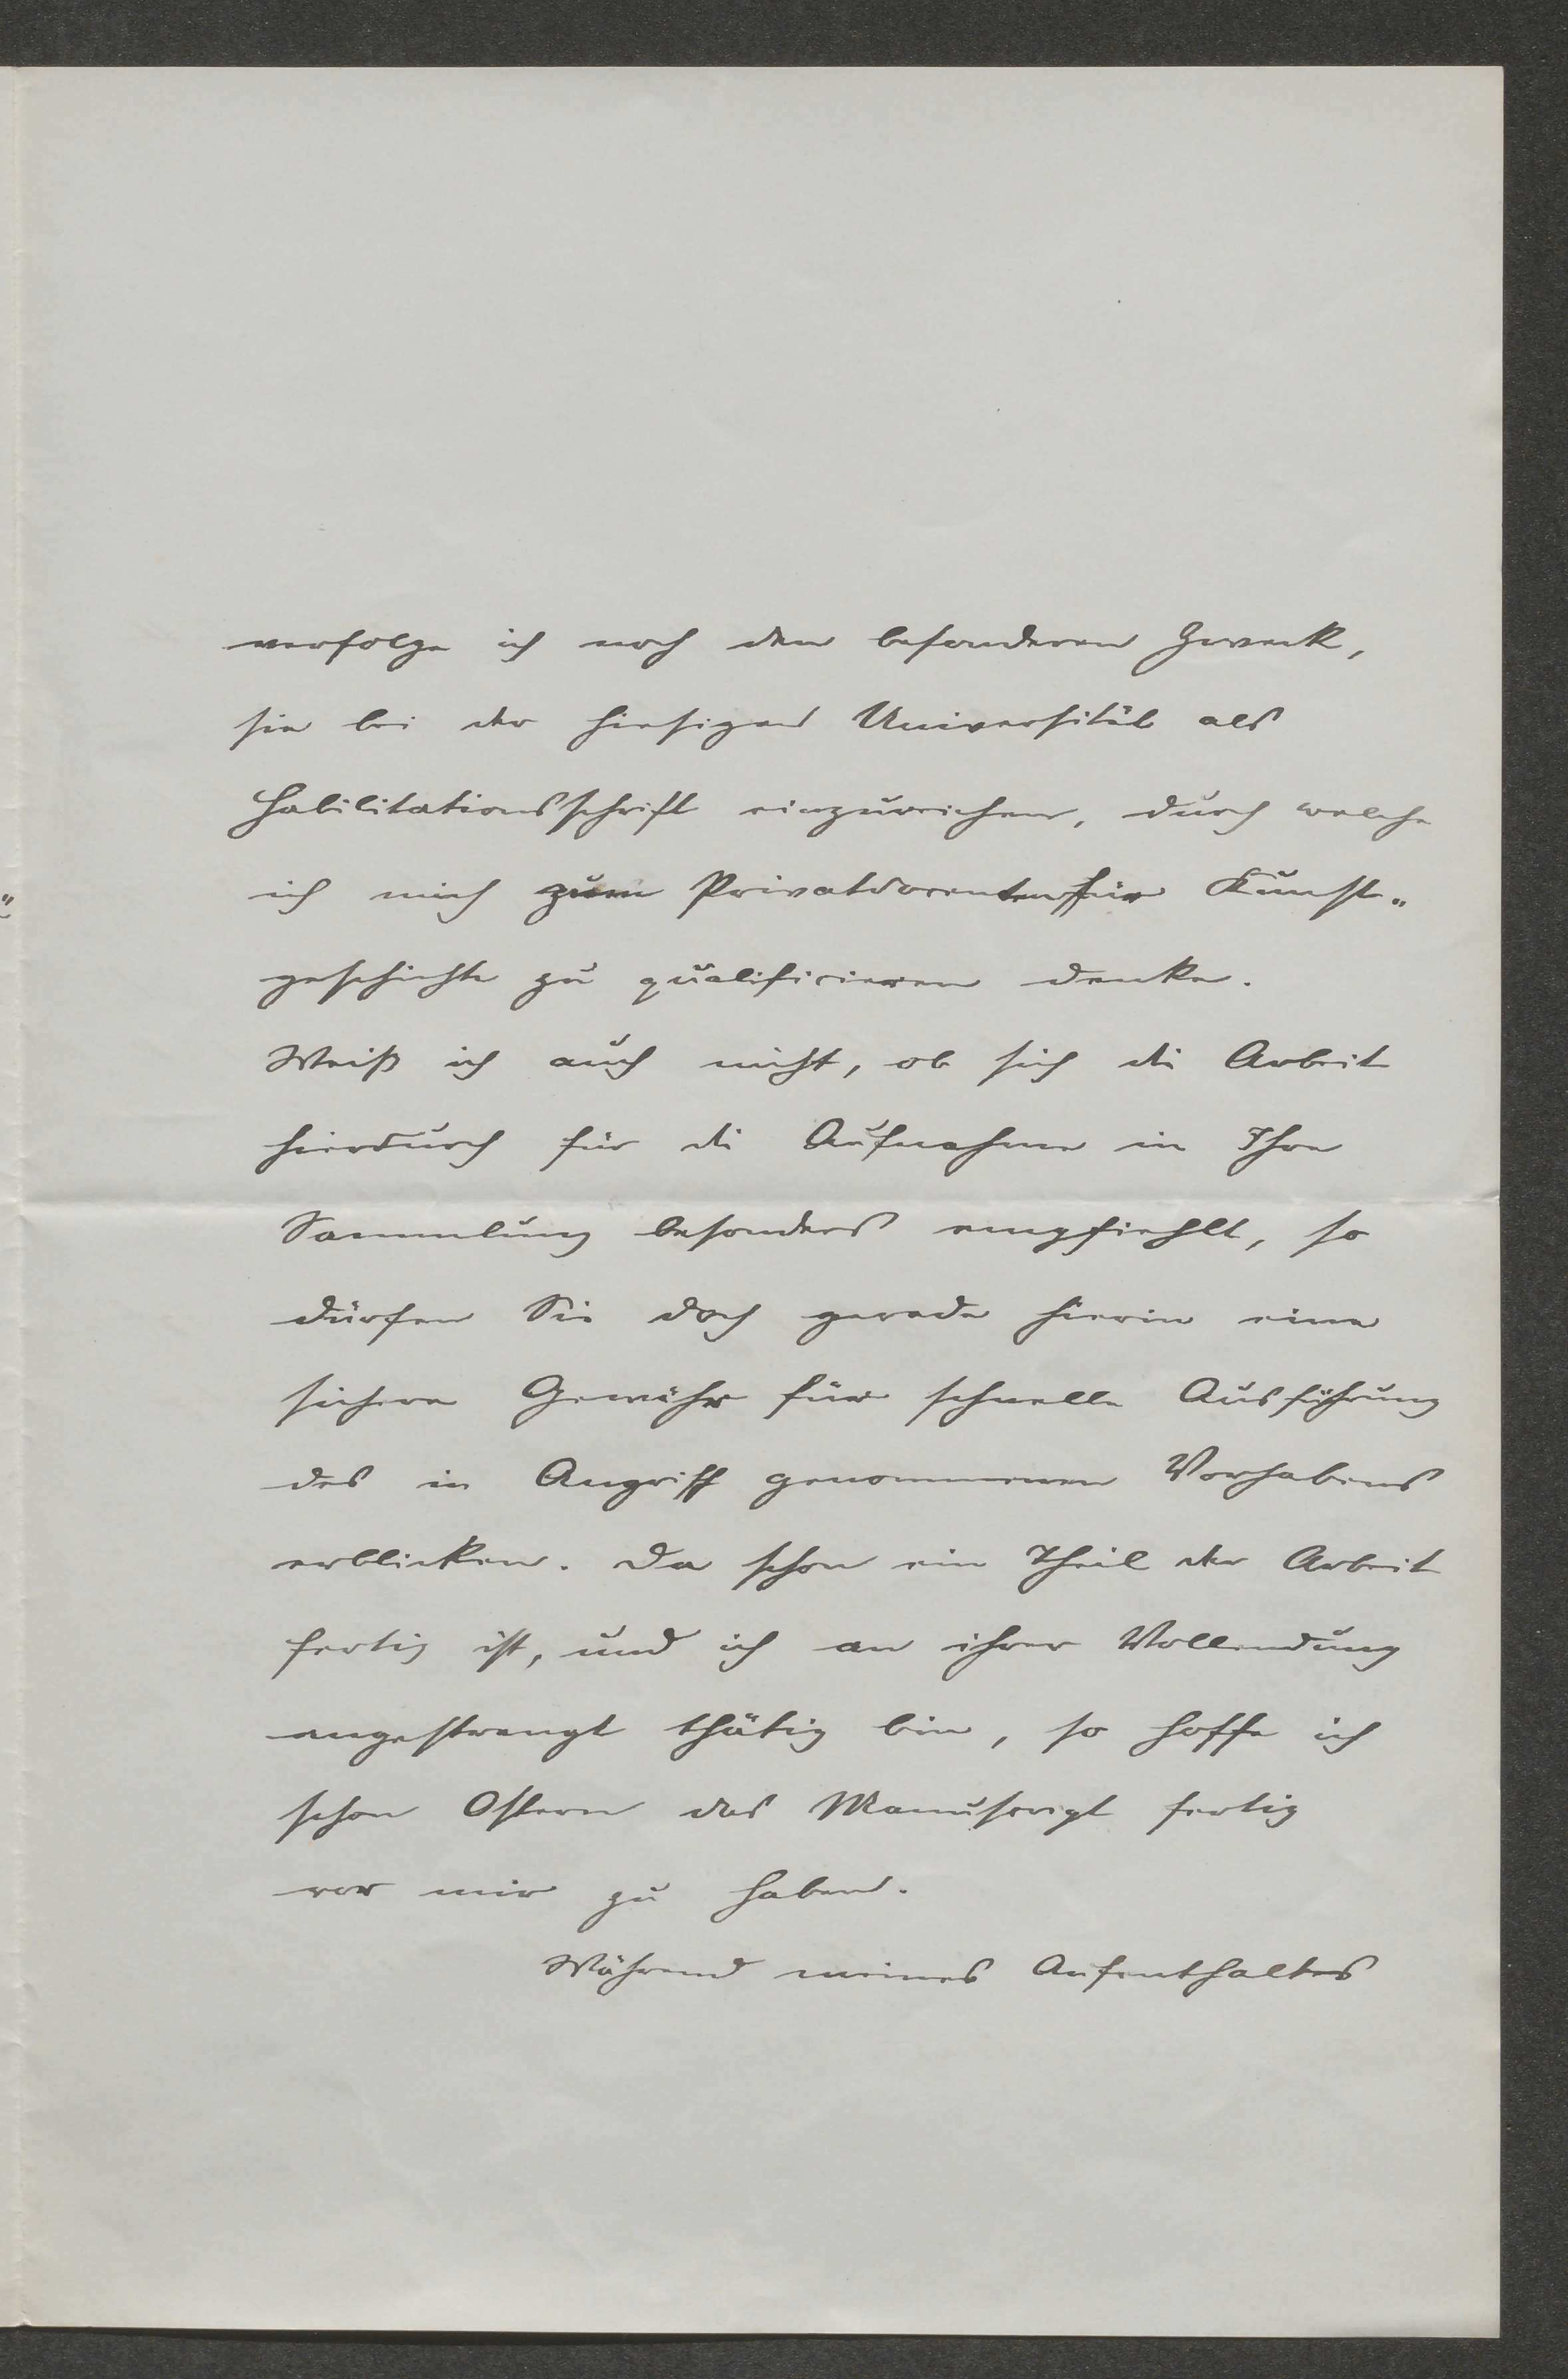 verfolge ich noch den besonderen Zweck,
sie bei der hiesigen Universität als
Habilitationsschrift einzureichen, durch welche
ich mich zum Privatdocenten für Kunst-
geschichte zu qualificieren denke.
Weiß ich auch nicht, ob sich die Arbeit
hierdurch für die Aufnahme in Ihre
Sammlung besonders empfiehlt, so
dürfen Sie doch gerade hierin eine
sichere Gewähr für schnelle Ausführung
des in Angriff genommenen Vorhabens
erblicken. Da schon ein Theil der Arbeit
fertig ist, und ich an ihrer Vollendung
angestrengt thätig bin, so hoffe ich
schon Ostern das Manuscript fertig
vor mir zu haben.
Während meines Aufenthaltes